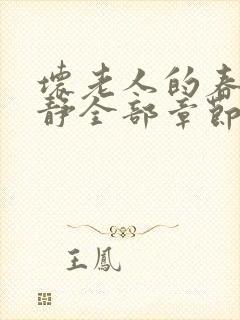 壞老人的春
靜全部章節
王鳳